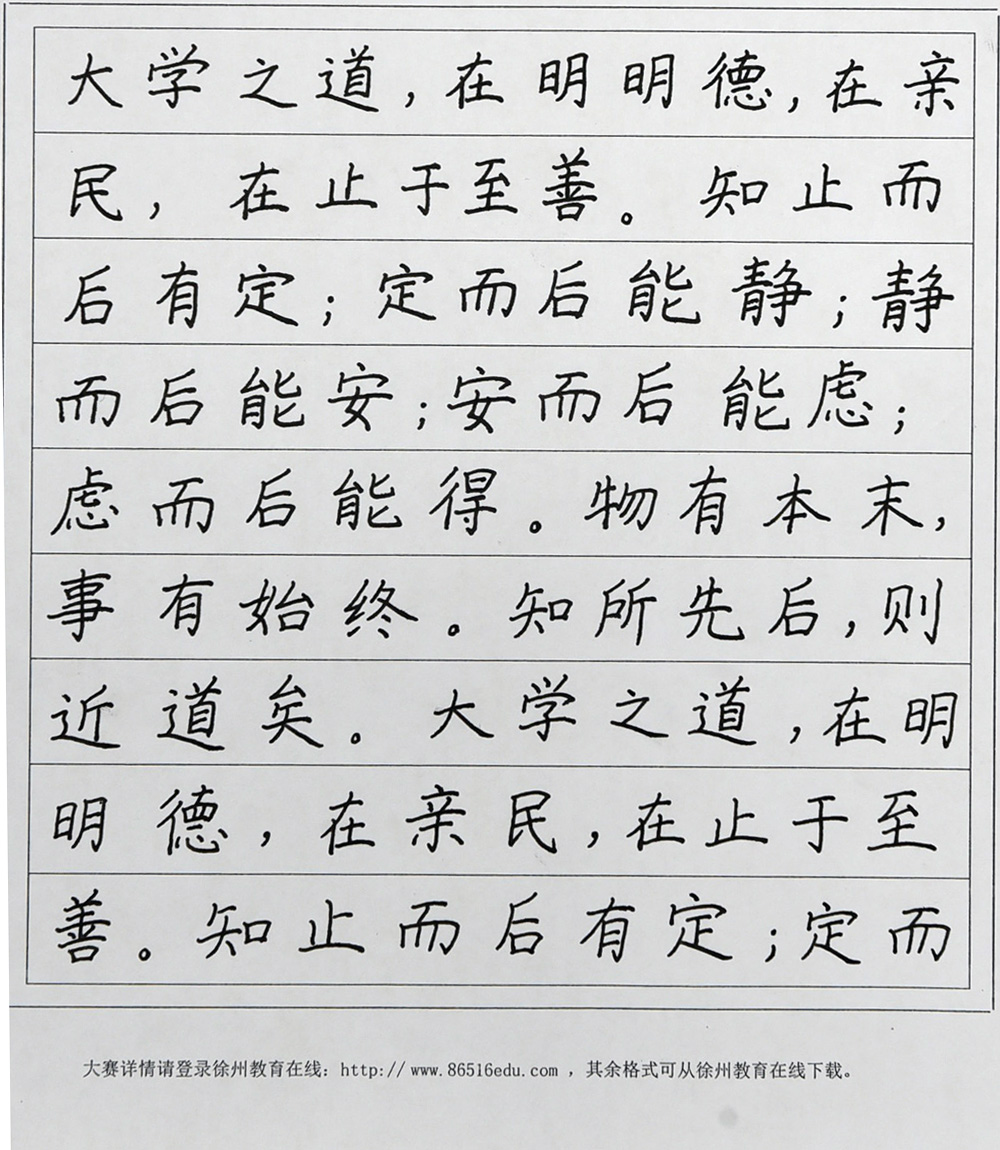 大学之道，在明明德，在亲
民，在止于至善。知止而
后有定；定而后能静；静
而后能安；安而后能虑；
虑而后能得。物有本末，
事有始终。知所先后，则
近道矣。大学之道，在明
明德，在亲民，在止于至
善。知止而后有定；定而
大赛详情请登录徐州教育在线：http://www.86516edu.com，其余格式可从徐州教育在线下载。